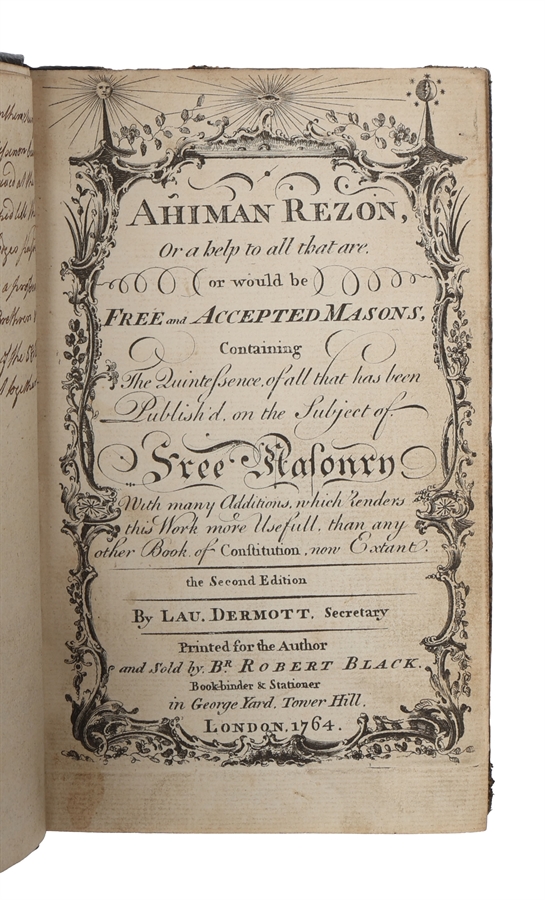 AHIMAN REZON,
Or a help to all that are.
(or would be)
FREE and ACCEPTED MASONS,
Containing
The Quinteſsence, of all that has been
Publish'd, on the Subject of
Free Maſonry
With many Additions, which Renders
this Work more Usefull, than any
other Book of Constitution, now Extant.
the Second Edition
By LAU. DERMOTT, Secretary
Printed for the Author
and Sold by, BR ROBERT BLACK.
Book-binder & Stationer
in George Yard, Tower Hill,
LONDON, 1764.